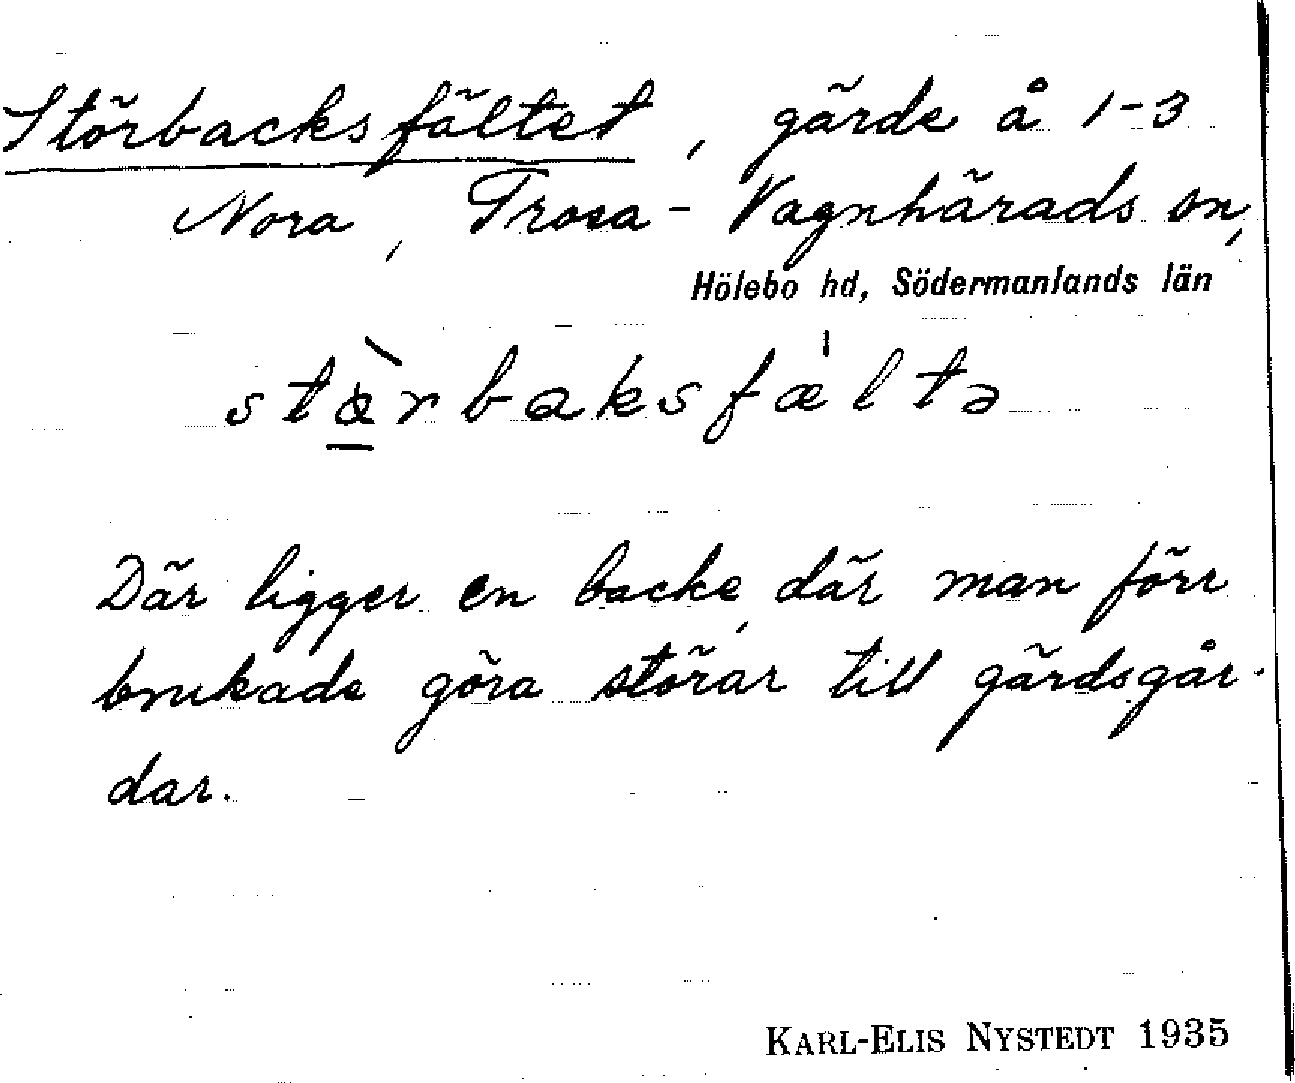 Störbacksfältet, gärde å 1-3
Nora, Trosa-Vagnhärads sn,
Hölebo hd, Södermanlands län
Där ligger en backe, där man förr
brukade göra störar till gärdsgår-
dar.
KARL-ELIS NYSTEDT 1935